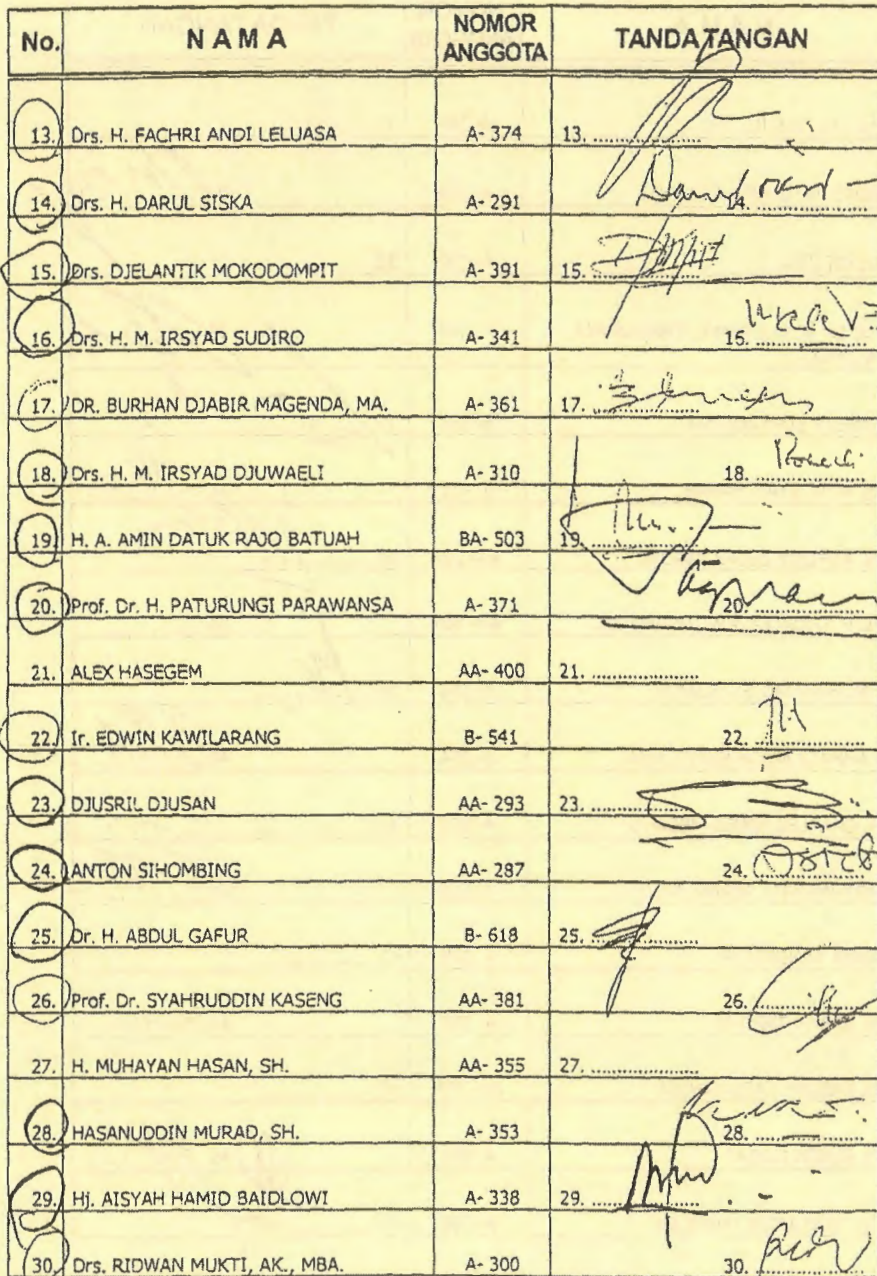 No. N A M A NOMOR ANGGOTA TANDA TANGAN
13. Drs. H. FACHRI ANDI LELUASA A- 374 13. ....................
14. Drs. H. DARUL SISKA A- 291 14. ....................
15. Drs. DJELANTIK MOKODOMPIT A- 391 15. ....................
16. Drs. H. M. IRSYAD SUDIRO A- 341 16. ....................
17. DR. BURHAN DJABIR MAGENDA, MA. A- 361 17. ....................
18. Drs. H. M. IRSYAD DJUWAELI A- 310 18. ....................
19. H. A. AMIN DATUK RAJO BATUAH BA- 503 19. ....................
20. Prof. Dr. H. PATURUNGI PARAWANSA A- 371 20. ....................
21. ALEX HASEGEM AA- 400 21. ....................
22. Ir. EDWIN KAWILARANG B- 541 22. ....................
23. DJUSRIL DJUSAN AA- 293 23. ....................
24. ANTON SIHOMBING AA- 287 24. ....................
25. Dr. H. ABDUL GAFUR B- 618 25. ....................
26. Prof. Dr. SYAHRUDDIN KASENG AA- 381 26. ....................
27. H. MUHAYAN HASAN, SH. AA- 355 27. ....................
28. HASANUDDIN MURAD, SH. A- 353 28. ....................
29. Hj. AISYAH HAMID BAIDLOWI A- 338 29. ....................
30. Drs. RIDWAN MUKTI, AK., MBA. A- 300 30. ....................